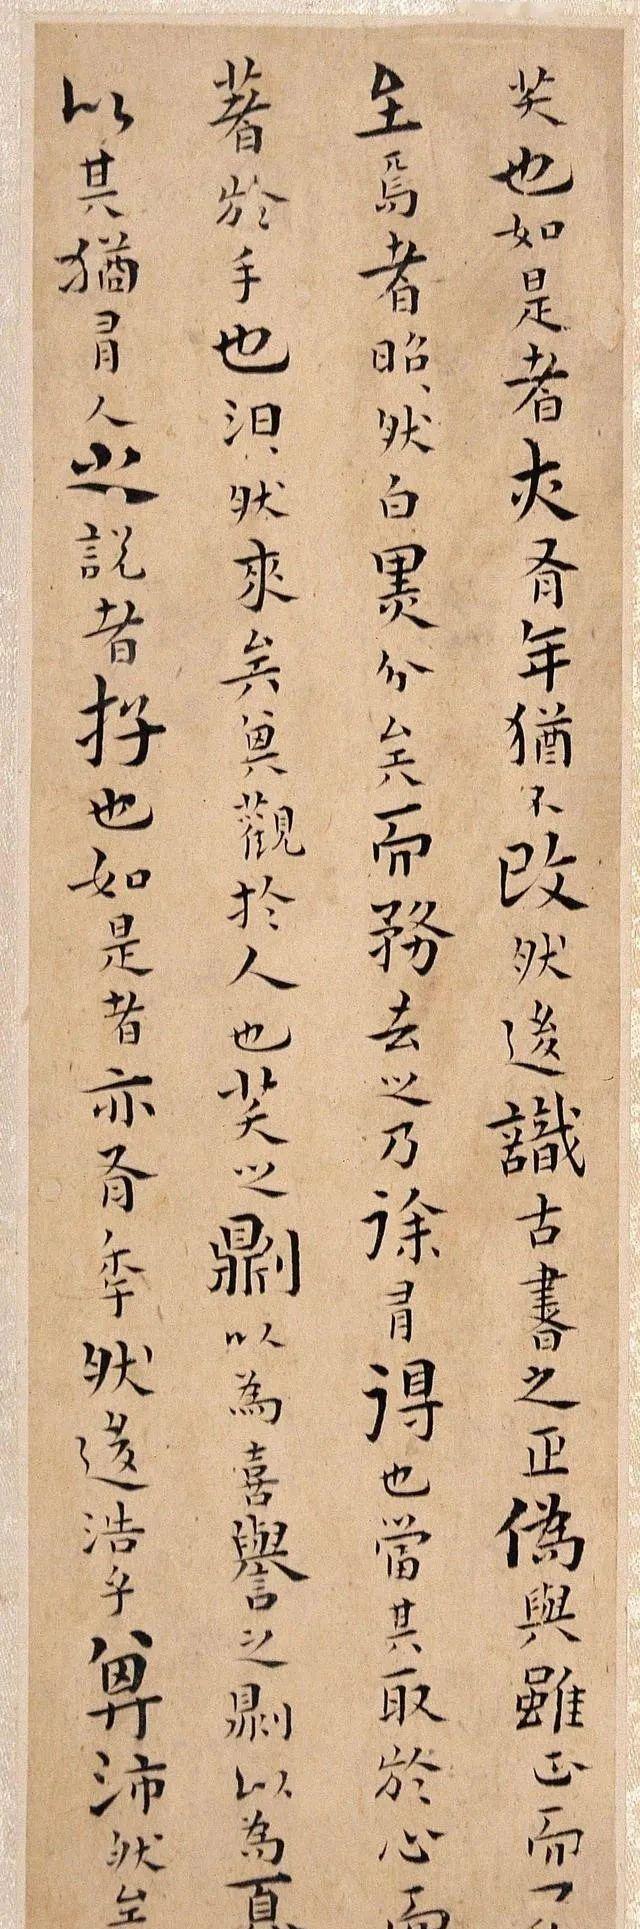 笑也如是者亦有年猶不改然後識古書之正偽與雖正而不
至焉者昭昭然白黑分矣而務去之乃徐有得也當其取於心而
著於手也汩汩然來矣其觀於人也笑之則以為喜譽之則以為憂
以其猶有人之說者存也如是者亦有年然後浩乎其沛然矣